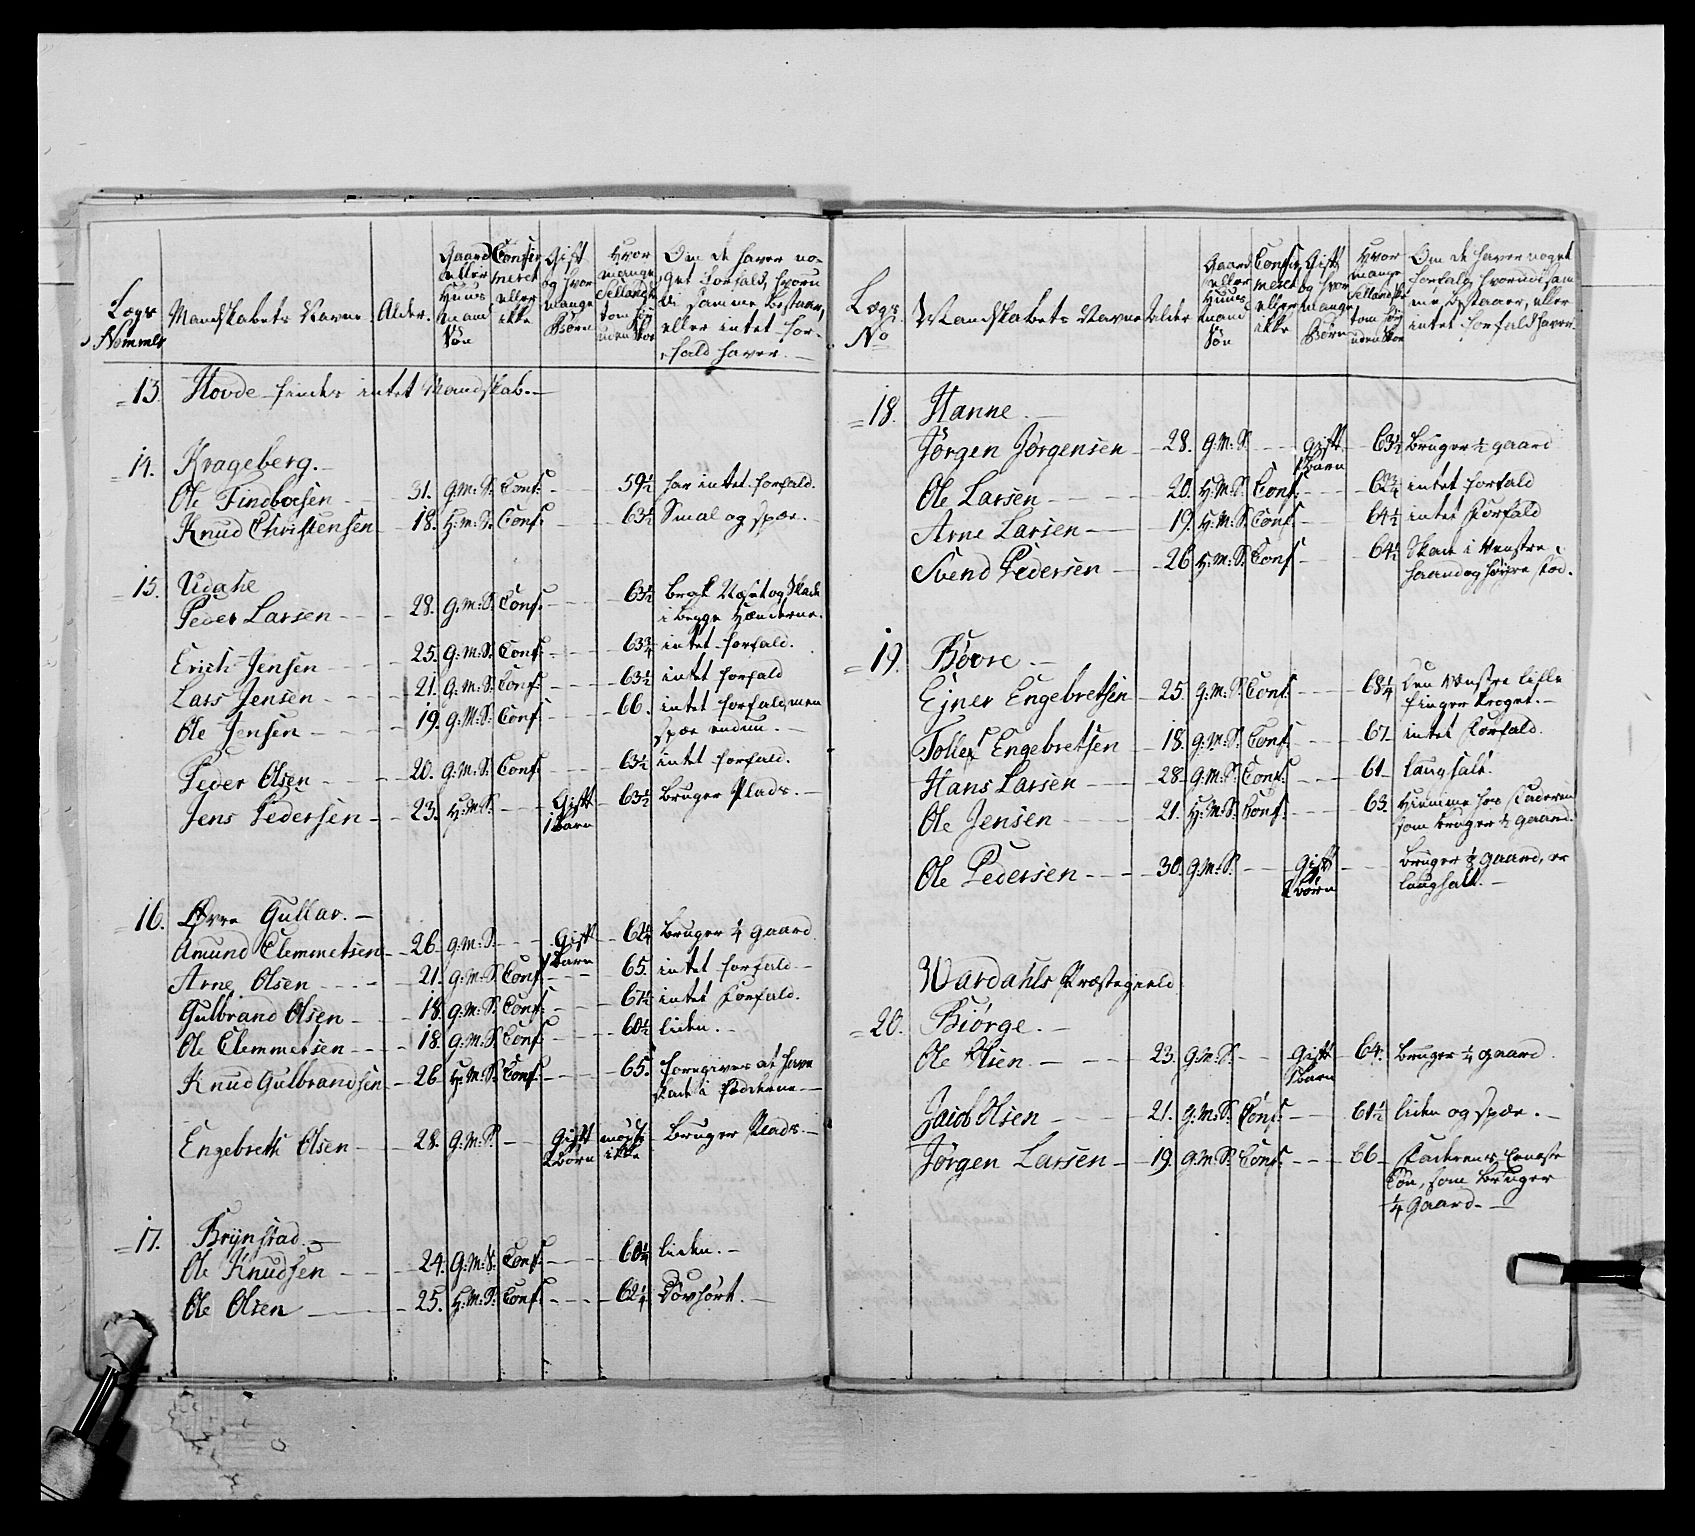 Lægs Nommer | Mandskabets Navne | Alder. | Gaard eller Huus mand Søn | Confir meret eller ikke | Gift og hvor mange Børn | Hvor mange Sellandske tom høy uden Skoe | Om de haver no- get Forfald, hvorudi samme bestaaer, eller intet For- fald haver.
13. Hovde findes intet Mandskab.
14. Krageberg.
Ole Findboesen 31. G:M:S. Conf: 59½ har intet forfald.
Knud Christensen 18. H:M:S. Conf: 63½ Smal og spæ.
15. Udahl
Peder Larsen 28. G:M:S. Conf: 63½ brak Næset og Skade
i begge Hænderne.
Erich Jensen 25. G:M:S. Conf: 63¾ intet forfald.
Lars Jensen 21. G:M:S. Conf: 63½ intet forfald
Ole Jensen 19. G:M:S. Conf: 66. intet forfald, men
spæ endnu.
Peder Olsen 20. G:M:S. Conf: 63½ intet forfald.
Jens Pedersen 23. H:M:S. Gift 1 Barn 63½ bruger Plads.
16. Øvre Gullar.
Amund Clemmetsen 26. G:M:S. Gift 1 Barn 62¼ bruger ¼ gaard
Arne Olsen 21. G:M:S. Conf: 65. intet forfald
Gulbrand Olsen 18. G:M:S. Conf: 67½ intet Forfald.
Ole Clemmetsen 18. G:M:S. Conf: 60½ liden.
Knud Gulbrandsen 26 H:M:S. Conf: 65. foregiver at have
skade i Fødderne
Engebreth Olsen 28. G:M:S. Gift 2 Børn mødt ikke bruger Plads.
17. Brynstad.
Ole Knudsen 24. G:M:S. Conf: 60¼ liden.
Ole Olsen 25. H:M:S. Conf: 62¼ Døvhørt.
Lægs No | Mandskabets Navne | Alder | Gaard eller Huus mand Søn | Confir meret eller ikke | Gift og hvor mange Børn | Hvor mange Sellandske tom høy uden Skoe | Om de haver noget Forfald, hvorudi sam me bestaaer, eller intet forfald haver.
18. Hanne.
Jørgen Jørgensen 28. G:M:S. gift 1 Barn 63½ bruger ½ gaard
Ole Larsen 20. H:M:S. Conf: 62¾ intet forfald
Arne Larsen 19. H:M:S. Conf: 64½ intet Forfald
Svend Pedersen 26 H:M:S. Conf 64½ Skade i Venstre
haand og høyre Fod.
19. Bøvre.
Ejner Engebretsen 25. G:M:S. Conf: 68¼ Den Venstre lille
finger kroget.
Tollef Engebretsen 18. G:M:S. Conf: 67 intet Forfald.
Hans Larsen 28 G:M:S. Conf: 61 laughalt.
Ole Jensen 21. H:M:S. Conf: 63. Hiemme hos Faderen
som bruger ½ gaard.
Ole Pedersen 30. G:M:S. Gift 2 børn bruger ½ gaard, er
laughalt.
Wardahls Præstegield
20. Biørge.
Ole Olsen 23. G:M:S. Gift 1 barn 64. bruger ¼ gaard
Jacob Olsen 21. G:M:S. Conf: 61½ liden og spæ.
Jørgen Larsen 19. G:M:S. Conf: 66 Faderens Eeneste
Søn, som bruger
¼ Gaard.